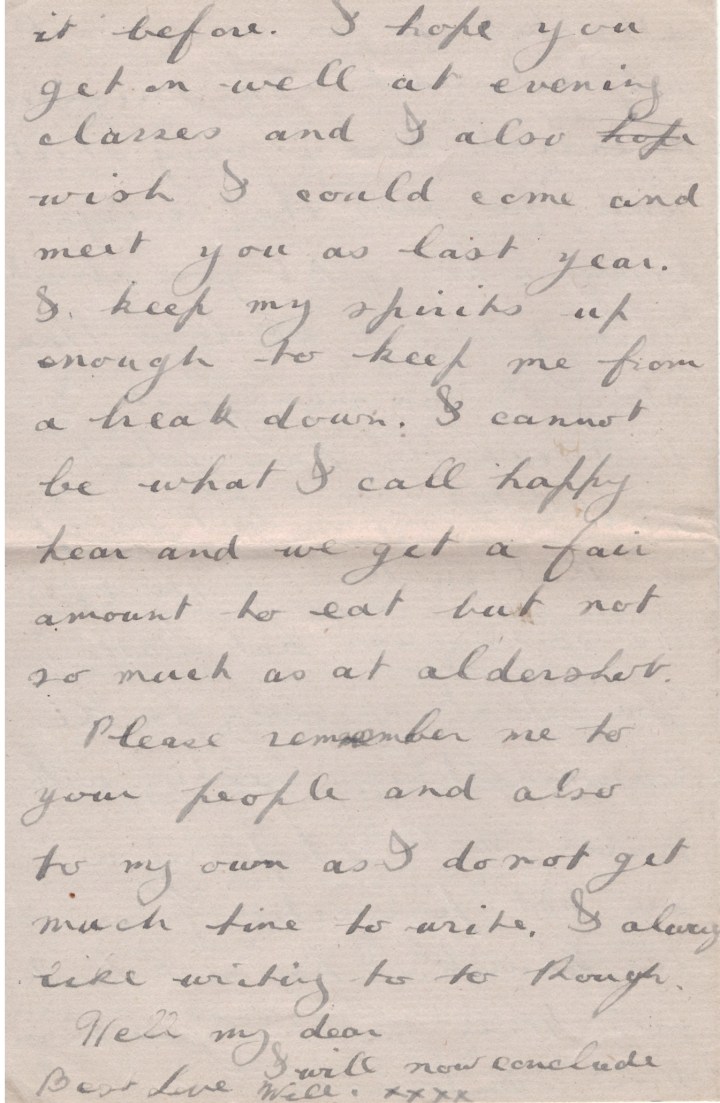 it before. I hope you
get on well at evening
classes and I also hope
wish I could come and
meet you as last year.
I. keep my spirits up
enough to keep me from
a break down. I cannot
be what I call happy
hear and we get a fair
amount to eat but not
so much as at aldershot.
Please remember me to
your people and also
to my own as I do not get
much time to write. I always
like writing to to though.
Well my dear
I will now conclude
Best Love Will. xxxx